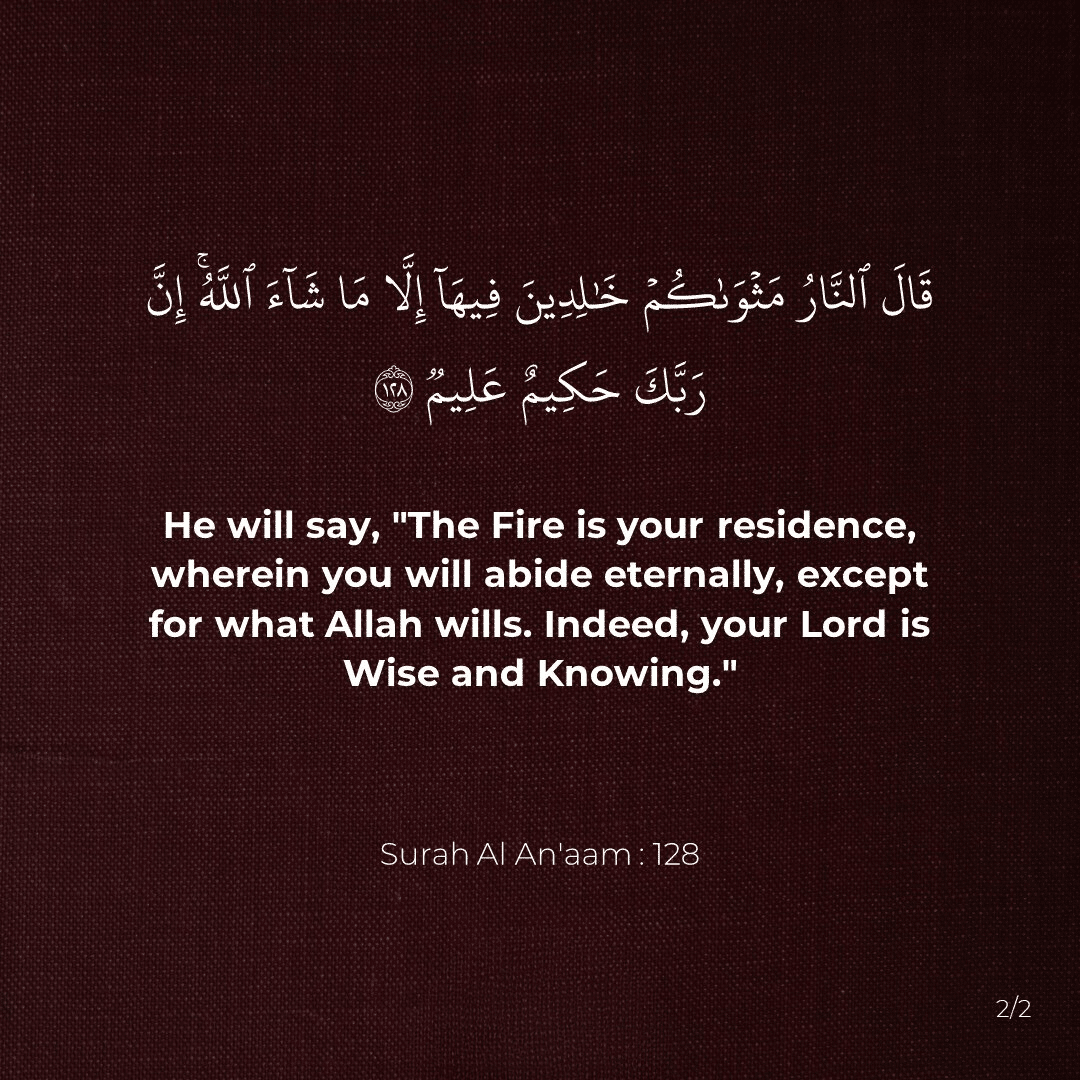 قَالَ ٱلنَّارُ مَثْوَىٰكُمْ خَـٰلِدِينَ فِيهَآ إِلَّا مَا شَآءَ ٱللَّهُ ۗ إِنَّ
رَبَّكَ حَكِيمٌ عَلِيمٌ ١٢٨
He will say, "The Fire is your residence,
wherein you will abide eternally, except
for what Allah wills. Indeed, your Lord is
Wise and Knowing."
Surah Al An'aam : 128
2/2